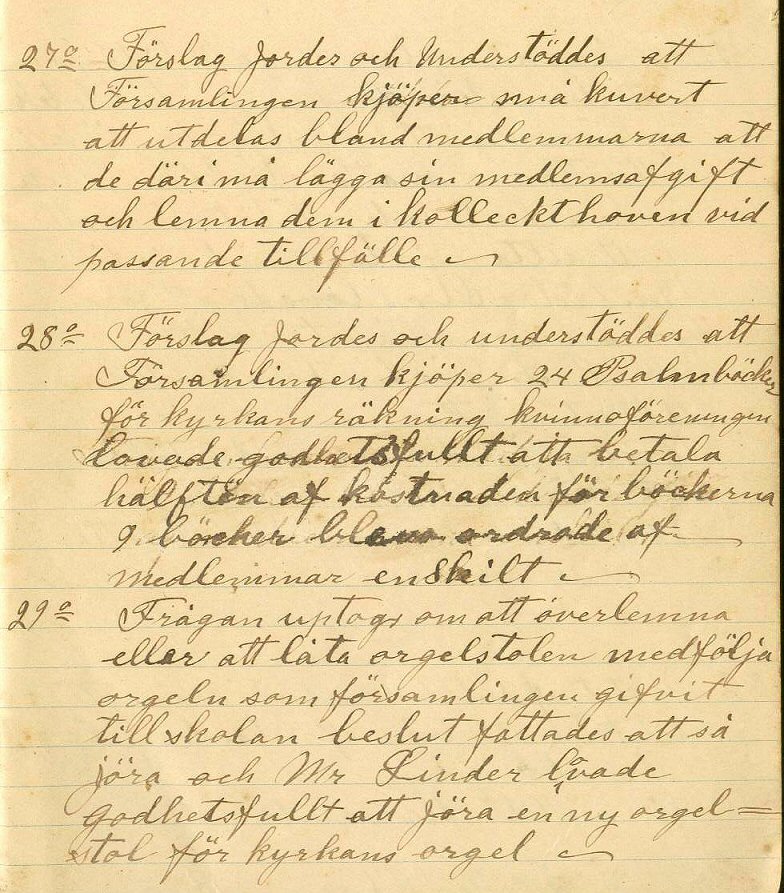 27o Förslag Jordes och Understöddes att
Församlingen kjöper små kuvert
att utdelas bland medlemmarna att
de däri må lägga sin medlemsafgift
och lemna dem i kolleckthoven vid
passande tillfälle
28o Förslag Jordes och understöddes att
Församlingen kjöper 24 Psalmböcker
för kyrkans räkning kvinnoföreningen
lovade godhetsfullt att betala
hälften af kostnaden för böckerna
9 böcker blevo ordrade af
medlemmar enskilt
29o Frågan uptogs om att överlemna
eller att låta orgelstolen medfölja
orgeln som församlingen gifvit
till skolan beslut fattades att så
jöra och Mr Linder lovade
godhetsfullt att jöra en ny orgel=
stol för kyrkans orgel